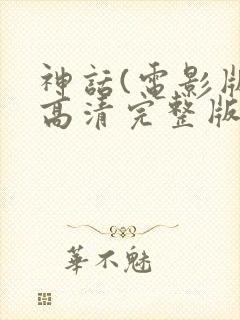 神話(電影版
高清完整版
華不魅